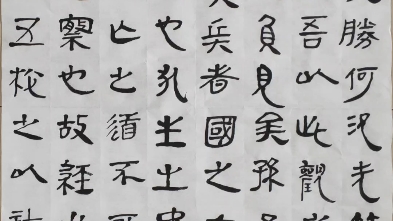 勝何況无
吾以此觀
負見矣孫
兵者國之
也死生之
亡之道不
察也故經
五校之以計